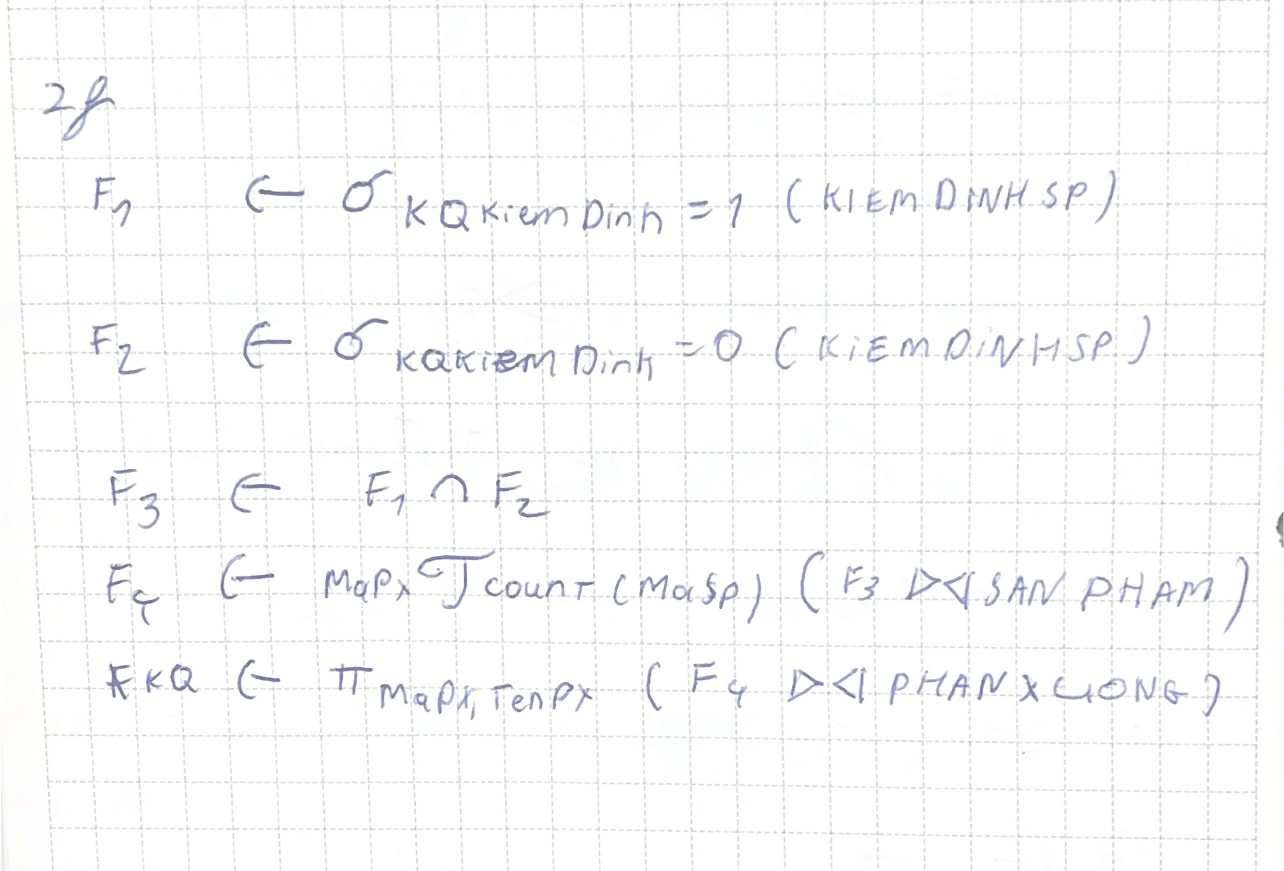 2f
F1 ← σ KQKiemDinh = 1 (KIEMDINHSP)
F2 ← σ KQKIEMDinh = 0 (KiEMDiNHSP)
F3 ← F1 ∩ F2
F4 ← MaPX ℑ COUNT (MaSp) (F3 ⋈ SAN PHAM)
KQ ← π MaPX, TenPX (F4 ⋈ PHAN XUONG)